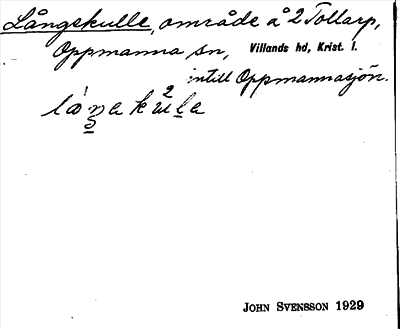 Långskulle, område å 2 Tollarp,
Oppmanna sn, Villands hd, Krist. l.
intill Oppmannasjön.
JOHN SVENSSON 1929